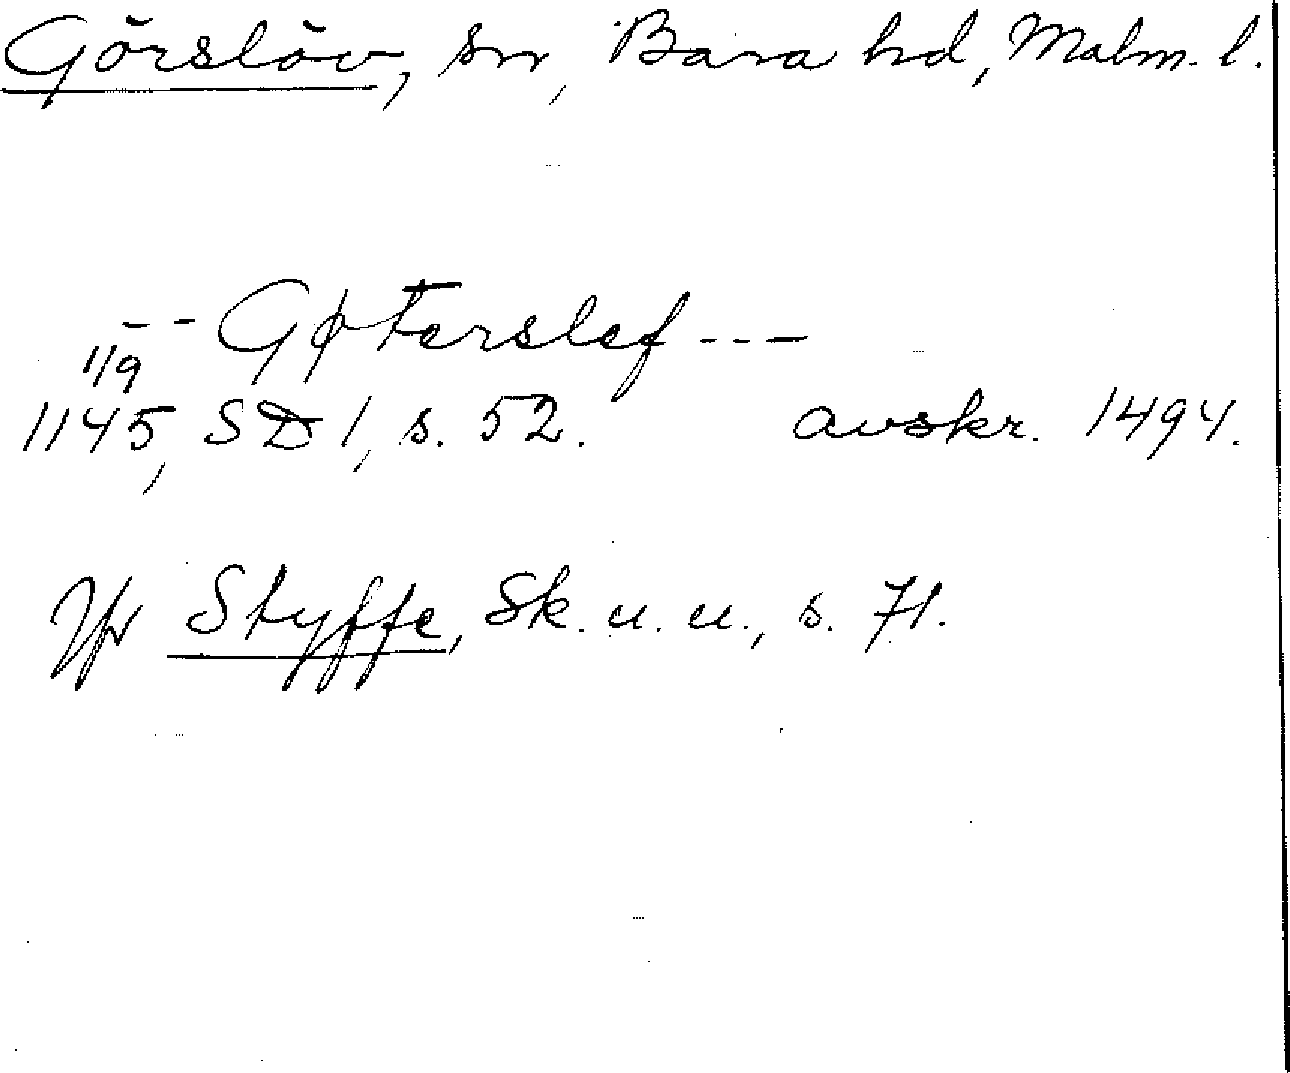 Görslöv, sn, Bara hd, Malm. l.
-- Gøterslef ---
1/9
1145, SD 1, s. 52. avskr. 1494.
Jfr Styffe, Sk. u. u., s. 71.